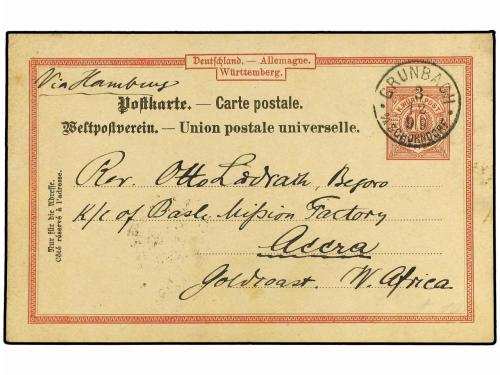 Deutschland. — Allemagne.
Württemberg.
Via Hamburg
Postkarte. — Carte postale.
Weltpostverein. — Union postale universelle.
GRUNBACH
3
99
SCHORNDORF
K. WÜRTT. POST
10
Nur für die Adresse.
Côté réservé à l'adresse.
Rev. Otto Lädrach, Begoro
K/c of Basle Mission Factory
Accra
Goldcoast W. Africa